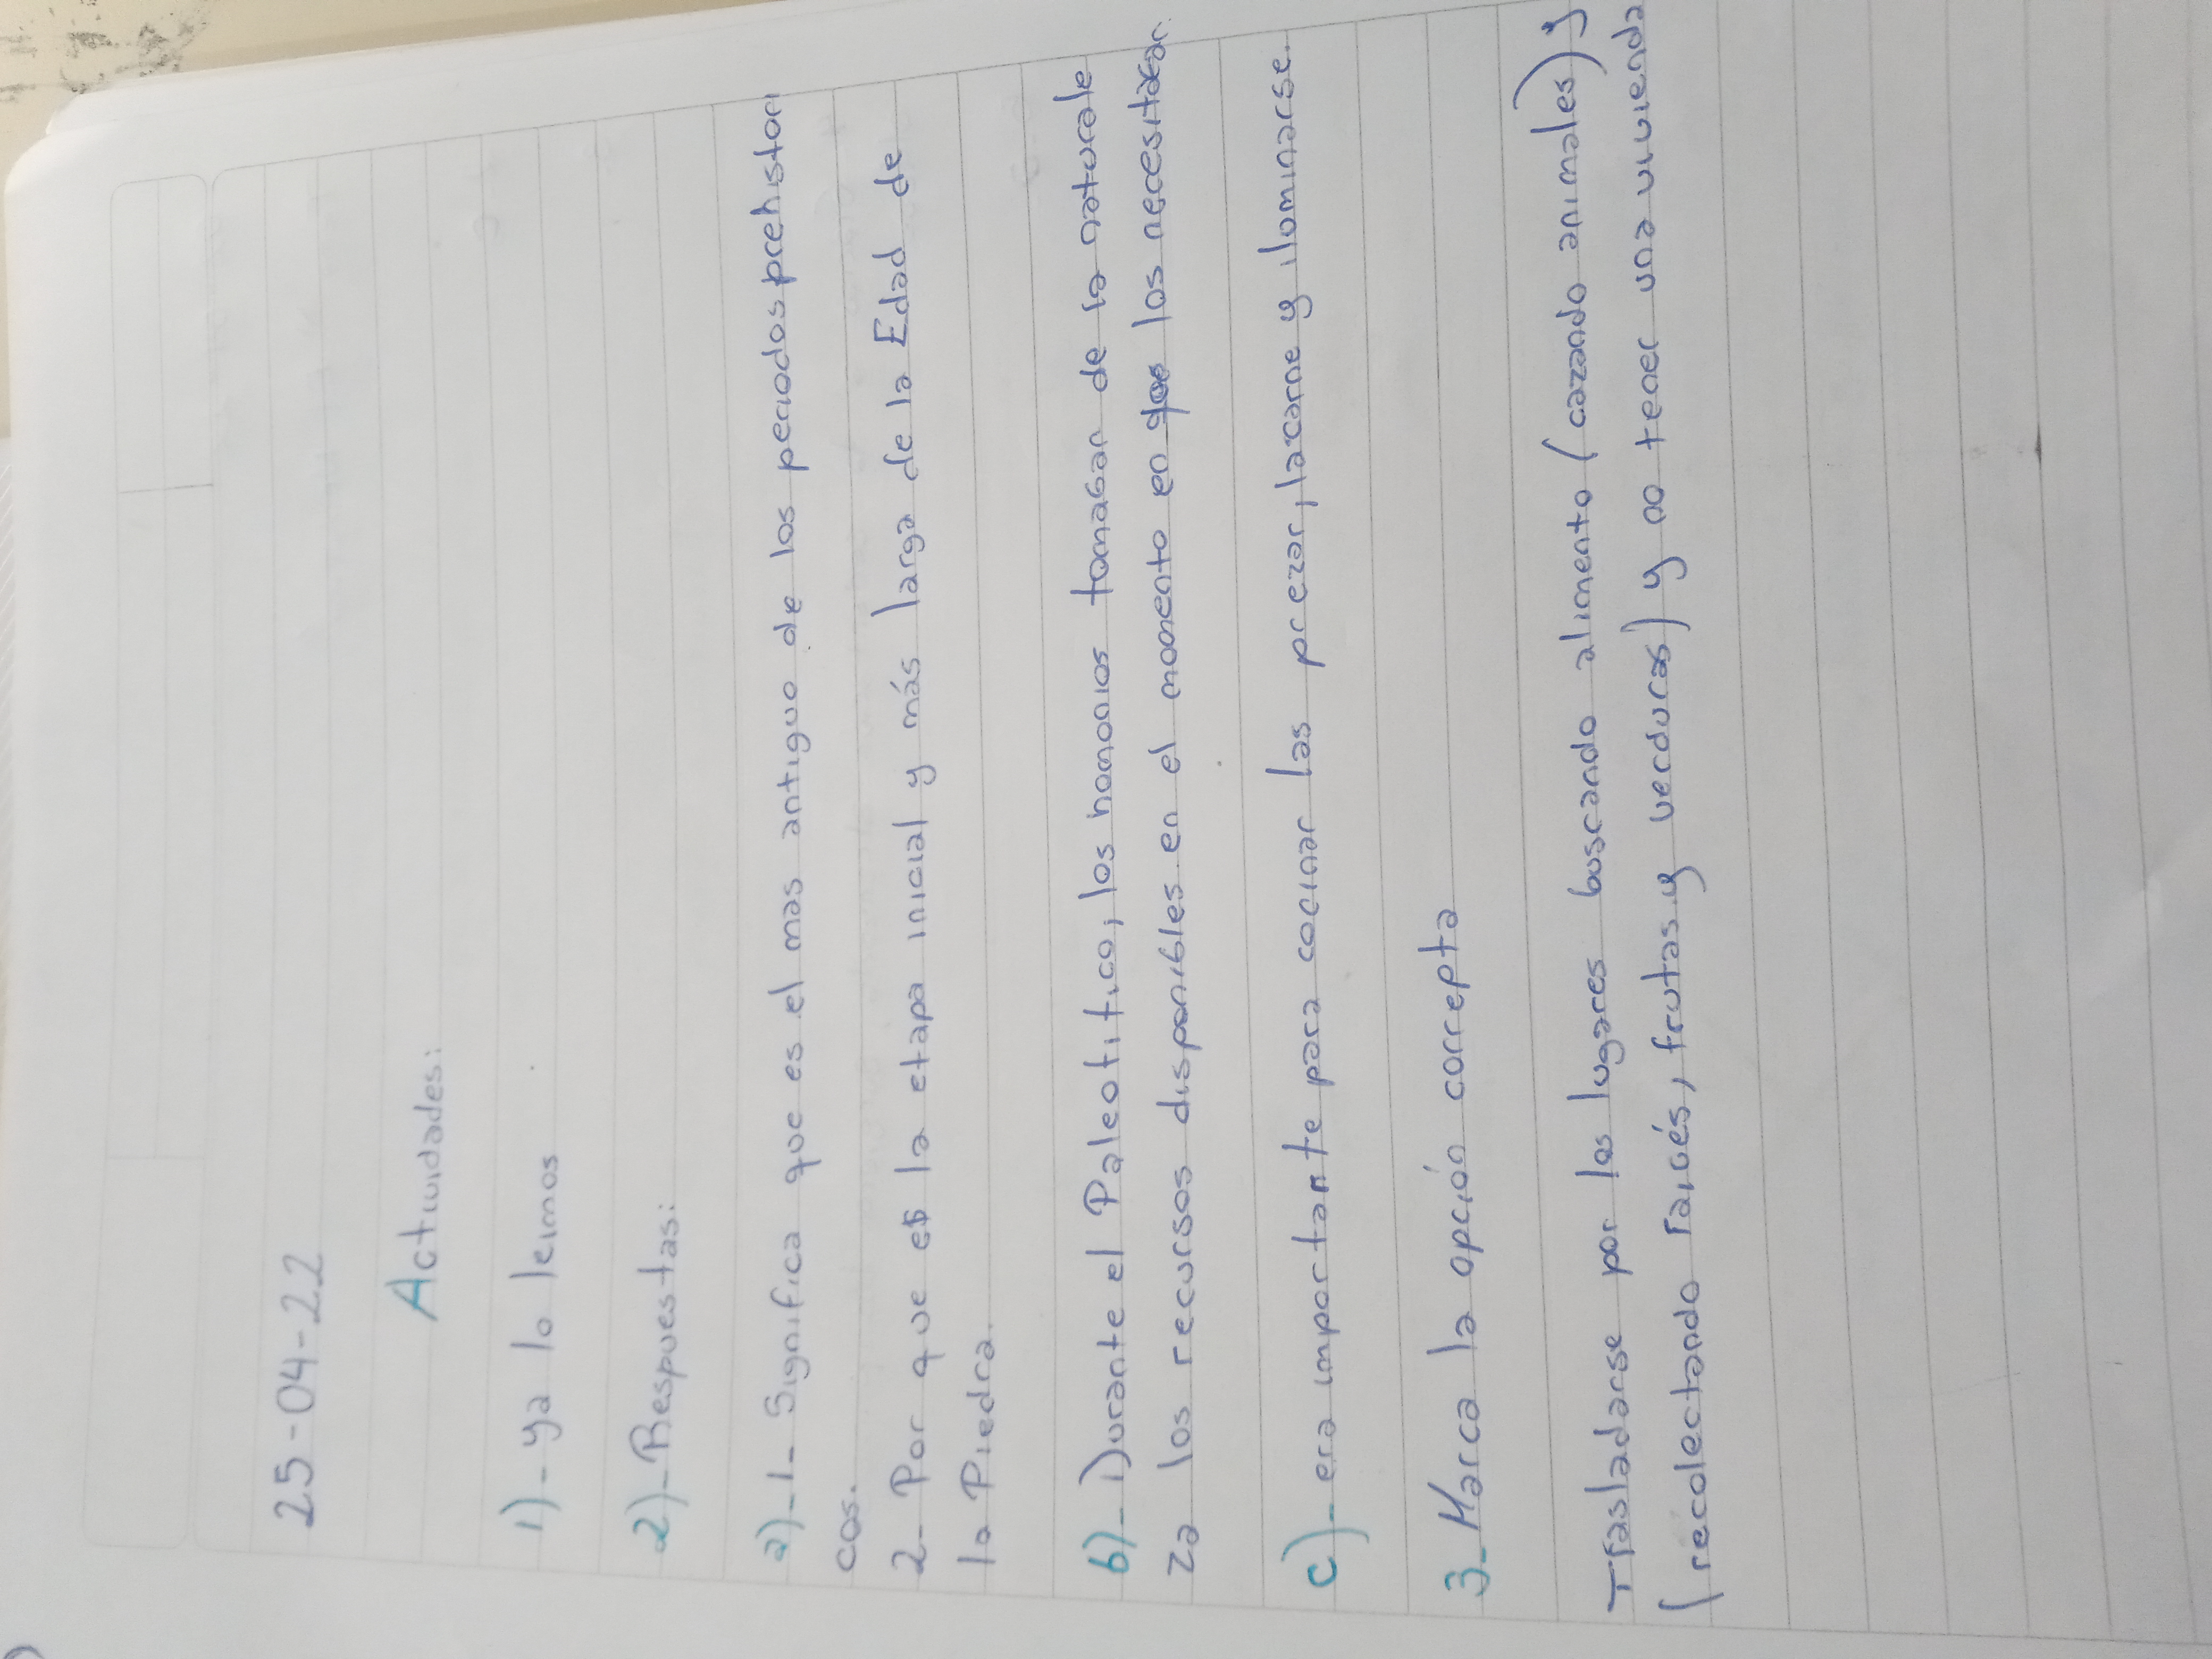 25-04-22
Actividades:
1)- ya lo leimos
2)-Respuestas:
a)-1- Significa que es el mas antiguo de los periodos prehistori
cos.
2- Por que es la etapa inicial y más larga de la Edad de
la Piedra.
b)- Durante el Paleotitico, los homonios tomaban de la naturale
za los recursos disponibles en el momento en que los necesitaban.
c)- era importante para cocinar las prezar, lacarne y iluminarse.
3- Marca la opción correpta
Trasladarse por los lugares buscando alimento (cazando animales) y
(recolectando raicés, frutas y verduras) y no tener una vivienda